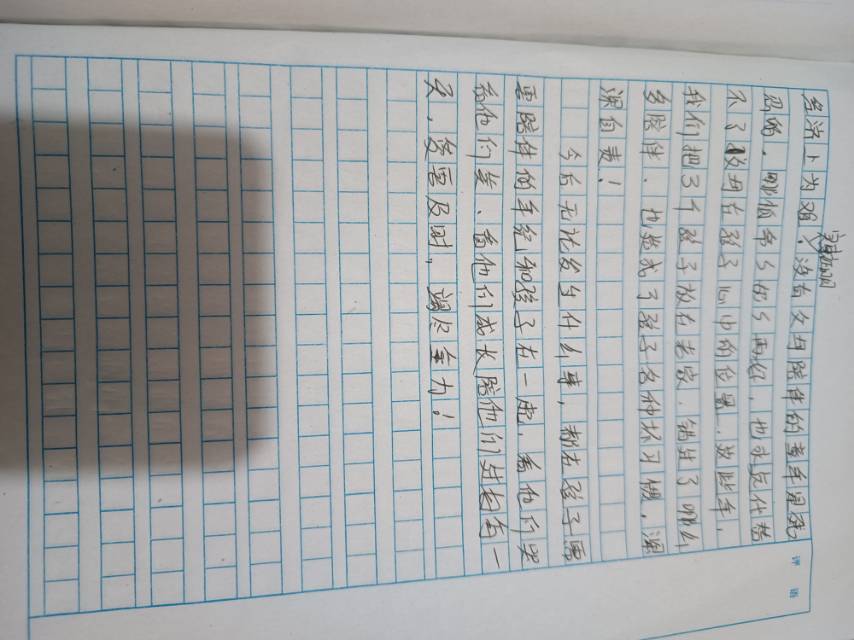 经济上为难，没有父母陪伴的童年是残
忍的，哪怕爷爷奶奶再好，也永远代替
不了父母在孩子心中的位置．这些年，
我们把3个孩子放在老家．错过了那么
多陪伴．也造成了孩子各种坏习惯，深
深自责！
今后无论发生什么事，都在孩子需
要陪伴的年纪和孩子在一起，看他们哭
看他们笑、看他们成长陪他们过好每一
天，爱需及时，竭尽全力！
评语